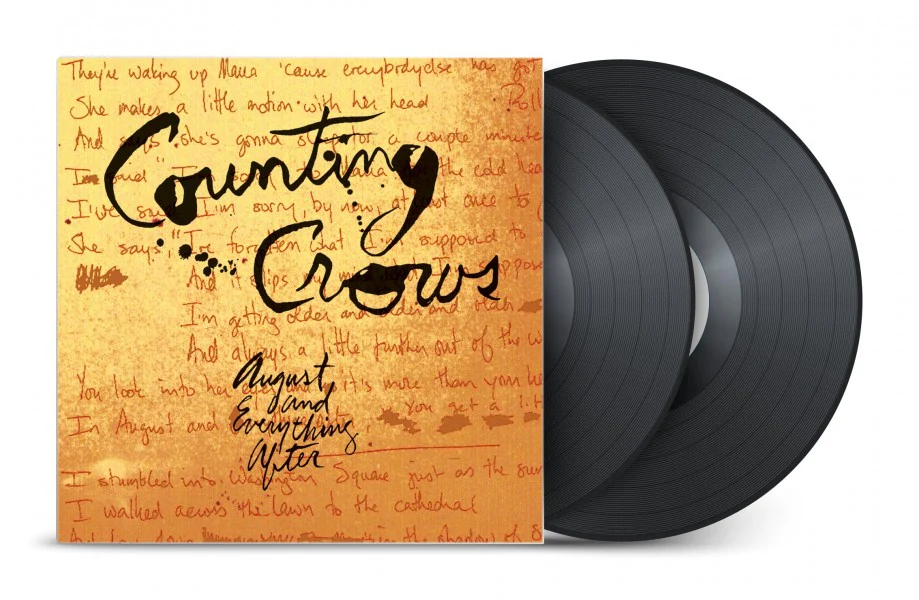 They're waking up Maria 'cause everybody else has got
She makes a little motion with her head
Roll
And says she's gonna a couple minute
Counting
I'm the cold
I've I'm sorry, by now, at once to
She says, "I've forgotten what I'm supposed to
Crows
And it slips my
I'm getting older and older and older and
And always a little further out of the w
August
and
Everything
After
You look into her it's more than your he
In August and
You get a lit
I stumbled into Washington Square just as the sun
I walked across the lawn to the cathedral
in the shadow of S